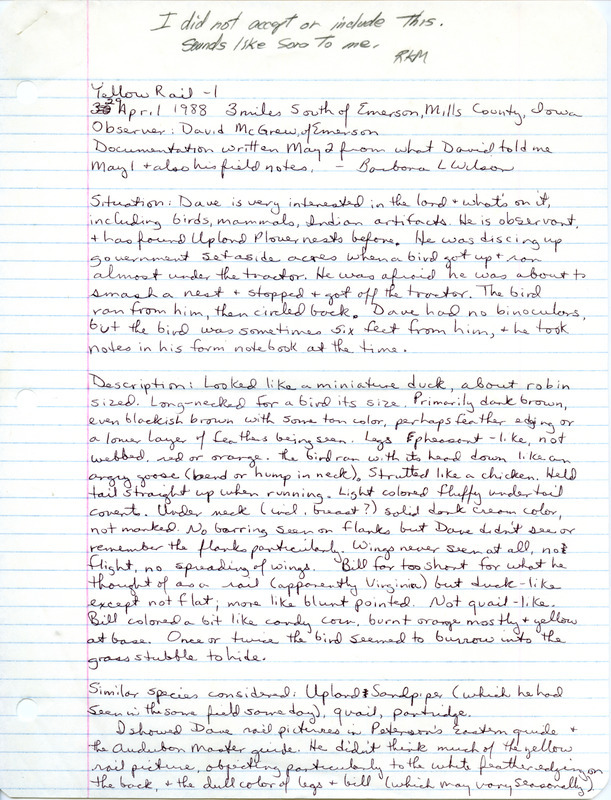 I did not accept or include this.
Sounds like Sora to me.
RKM
Yellow Rail - 1
29 April 1988 3 miles South of Emerson, Mills County, Iowa
Observer: David McGrew, of Emerson
Documentation written May 2 from what David told me
May 1 + also his field notes. - Barbara L Wilson
Situation: Dave is very interested in the land + what's on it,
including birds, mammals, Indian artifacts. He is observant,
+ has found Upland Plover nests before. He was discing up
government set aside acres when a bird got up + ran
almost under the tractor. He was afraid he was about to
smash a nest + stopped + got off the tractor. The bird
ran from him, then circled back. Dave had no binoculars,
but the bird was sometimes six feet from him, + he took
notes in his farm notebook at the time.
Description: Looked like a miniature duck, about robin
sized. Long-necked for a bird its size. Primarily dark brown,
even blackish brown with some tan color, perhaps feather edging or
a lower layer of feathers being seen. Legs pheasant-like, not
webbed, red or orange. The bird ran with its head down like an
angry goose (bend or hump in neck). Strutted like a chicken. Held
tail straight up when running. Light colored fluffy undertail
covert. Under neck (incl. breast?) solid dark cream color,
not marked. No barring seen on flanks but Dave didn't see or
remember the flanks particularly. Wings never seen at all, no
flight, no spreading of wings. Bill far too short for what he
thought of as a rail (apparently Virginia) but duck-like
except not flat; more like blunt pointed. Not quail-like.
Bill colored a bit like candy corn, burnt orange mostly + yellow
at base. Once or twice the bird seemed to burrow into the
grass stubble to hide.
Similar species considered: Upland Sandpiper (which he had
seen in the same field same day), quail, partridge.
I showed Dave rail pictures in Peterson's Eastern guide +
the Audubon Master guide. He didn't think much of the yellow
rail picture, objecting particularly to the white feather edging on
the back, + the dull color of legs + bill (which may vary seasonally)